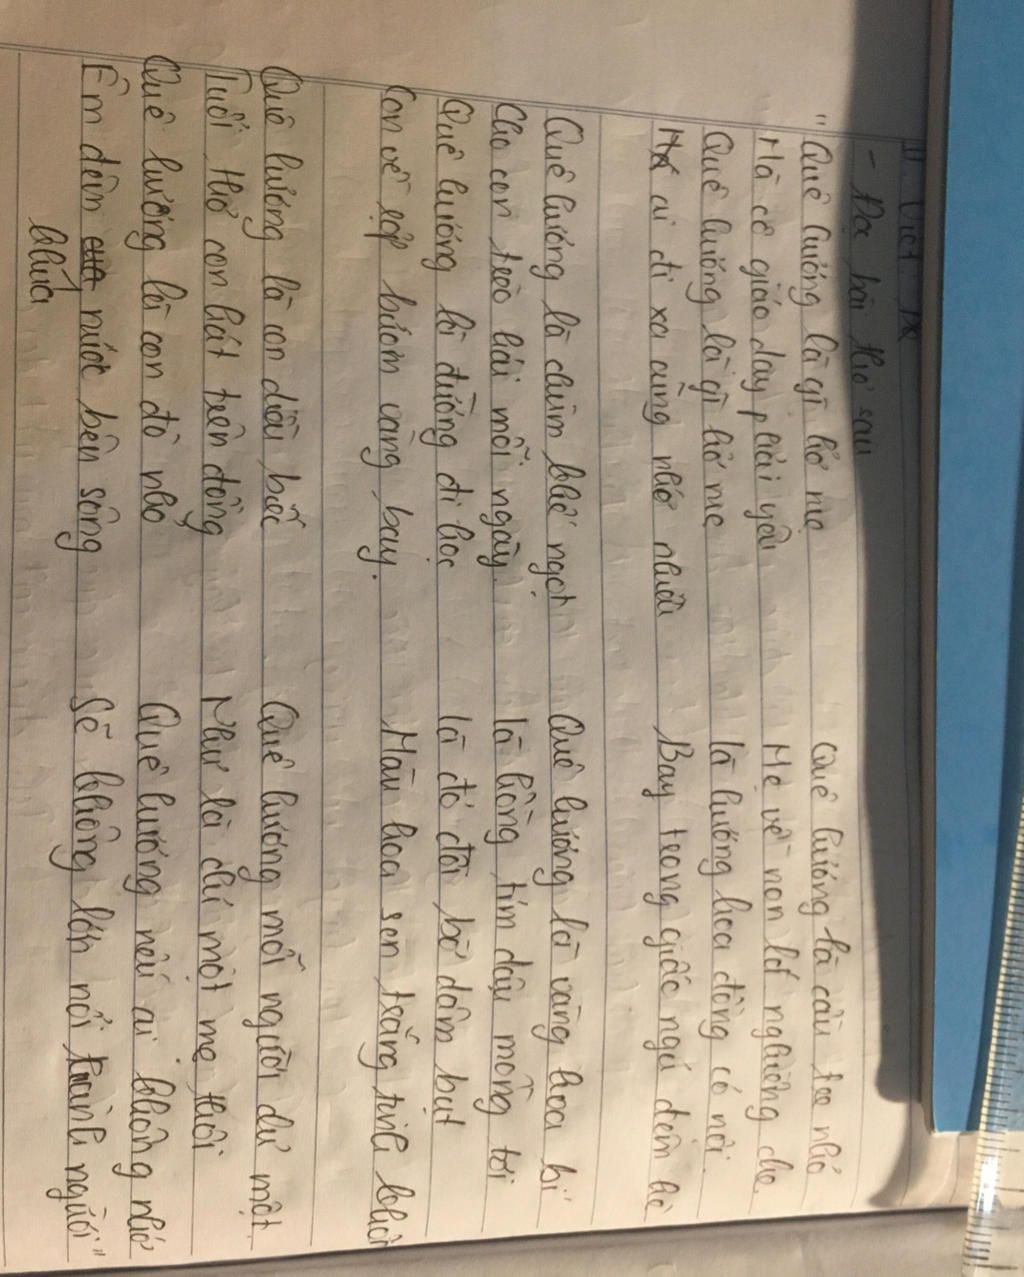 - Đọc bài thơ sau
"Quê hương là gì hở mẹ
Mà cô giáo dạy phải yêu
Quê hương là gì hở mẹ
ai đi xa cũng nhớ nhiều
Quê hương là chùm khế ngọt
Cho con trèo hái mỗi ngày
Quê hương là đường đi học
Con về rợp bướm vàng bay.
Quê hương là con diều biếc
Tuổi thơ con hát trên đồng
Quê hương là con đò nhỏ
Êm đềm nước bên sông
khua
Quê hương là cầu tre nhỏ
Mẹ về non lá nghiêng che
là hương hoa đồng cỏ nội.
Bay trong giấc ngủ đêm hè
Quê hương là vàng hoa bí
là hồng tím dậu mồng tơi
là đỏ đôi bờ dâm bụt
Màu hoa sen trắng tinh khôi
Quê hương mỗi người chỉ một
Như là chỉ một mẹ thôi
Quê hương nếu ai không nhớ
Sẽ không lớn nổi thành người"